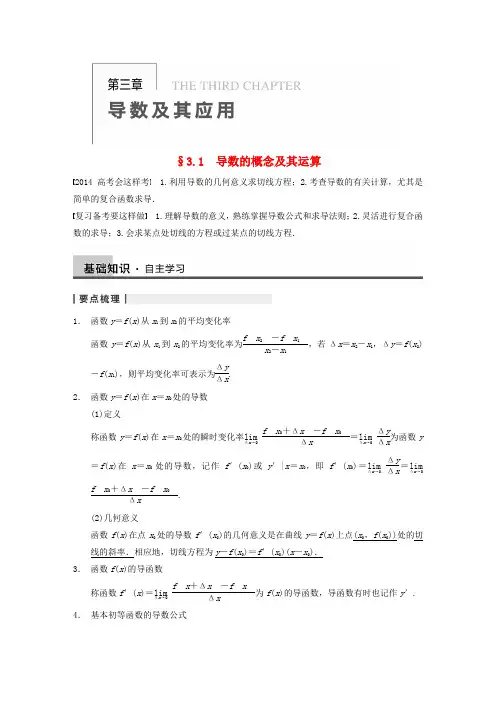 第三章 THE THIRD CHAPTER
导数及其应用
§3.1 导数的概念及其运算
[2014 高考会这样考] 1.利用导数的几何意义求切线方程；2.考查导数的有关计算，尤其是
简单的复合函数求导．
[复习备考要这样做] 1.理解导数的意义，熟练掌握导数公式和求导法则；2.灵活进行复合函
数的求导；3.会求某点处切线的方程或过某点的切线方程．
基础知识·自主学习
要点梳理
1． 函数 y＝f(x)从 x₁到 x₂的平均变化率
函数 y＝f(x)从 x₁到 x₂的平均变化率为 f x₂ －f x₁ / x₂－x₁，若 Δx＝x₂－x₁，Δy＝f(x₂)
－f(x₁)，则平均变化率可表示为Δy/Δx.
2． 函数 y＝f(x)在 x＝x₀处的导数
(1)定义
称函数 y＝f(x)在 x＝x₀处的瞬时变化率lim Δx→0 f x₀＋Δx －f x₀ / Δx＝lim Δx→0 Δy/Δx为函数 y
＝f(x)在 x＝x₀处的导数，记作 f′(x₀)或 y′|x＝x₀，即 f′(x₀)＝lim Δx→0 Δy/Δx＝lim Δx→0
f x₀＋Δx －f x₀ / Δx.
(2)几何意义
函数 f(x)在点 x₀处的导数 f′(x₀)的几何意义是在曲线 y＝f(x)上点(x₀，f(x₀))处的切
线的斜率．相应地，切线方程为 y－f(x₀)＝f′(x₀)(x－x₀)．
3． 函数 f(x)的导函数
称函数 f′(x)＝lim Δx→0 f x＋Δx －f x / Δx为 f(x)的导函数，导函数有时也记作 y′.
4． 基本初等函数的导数公式